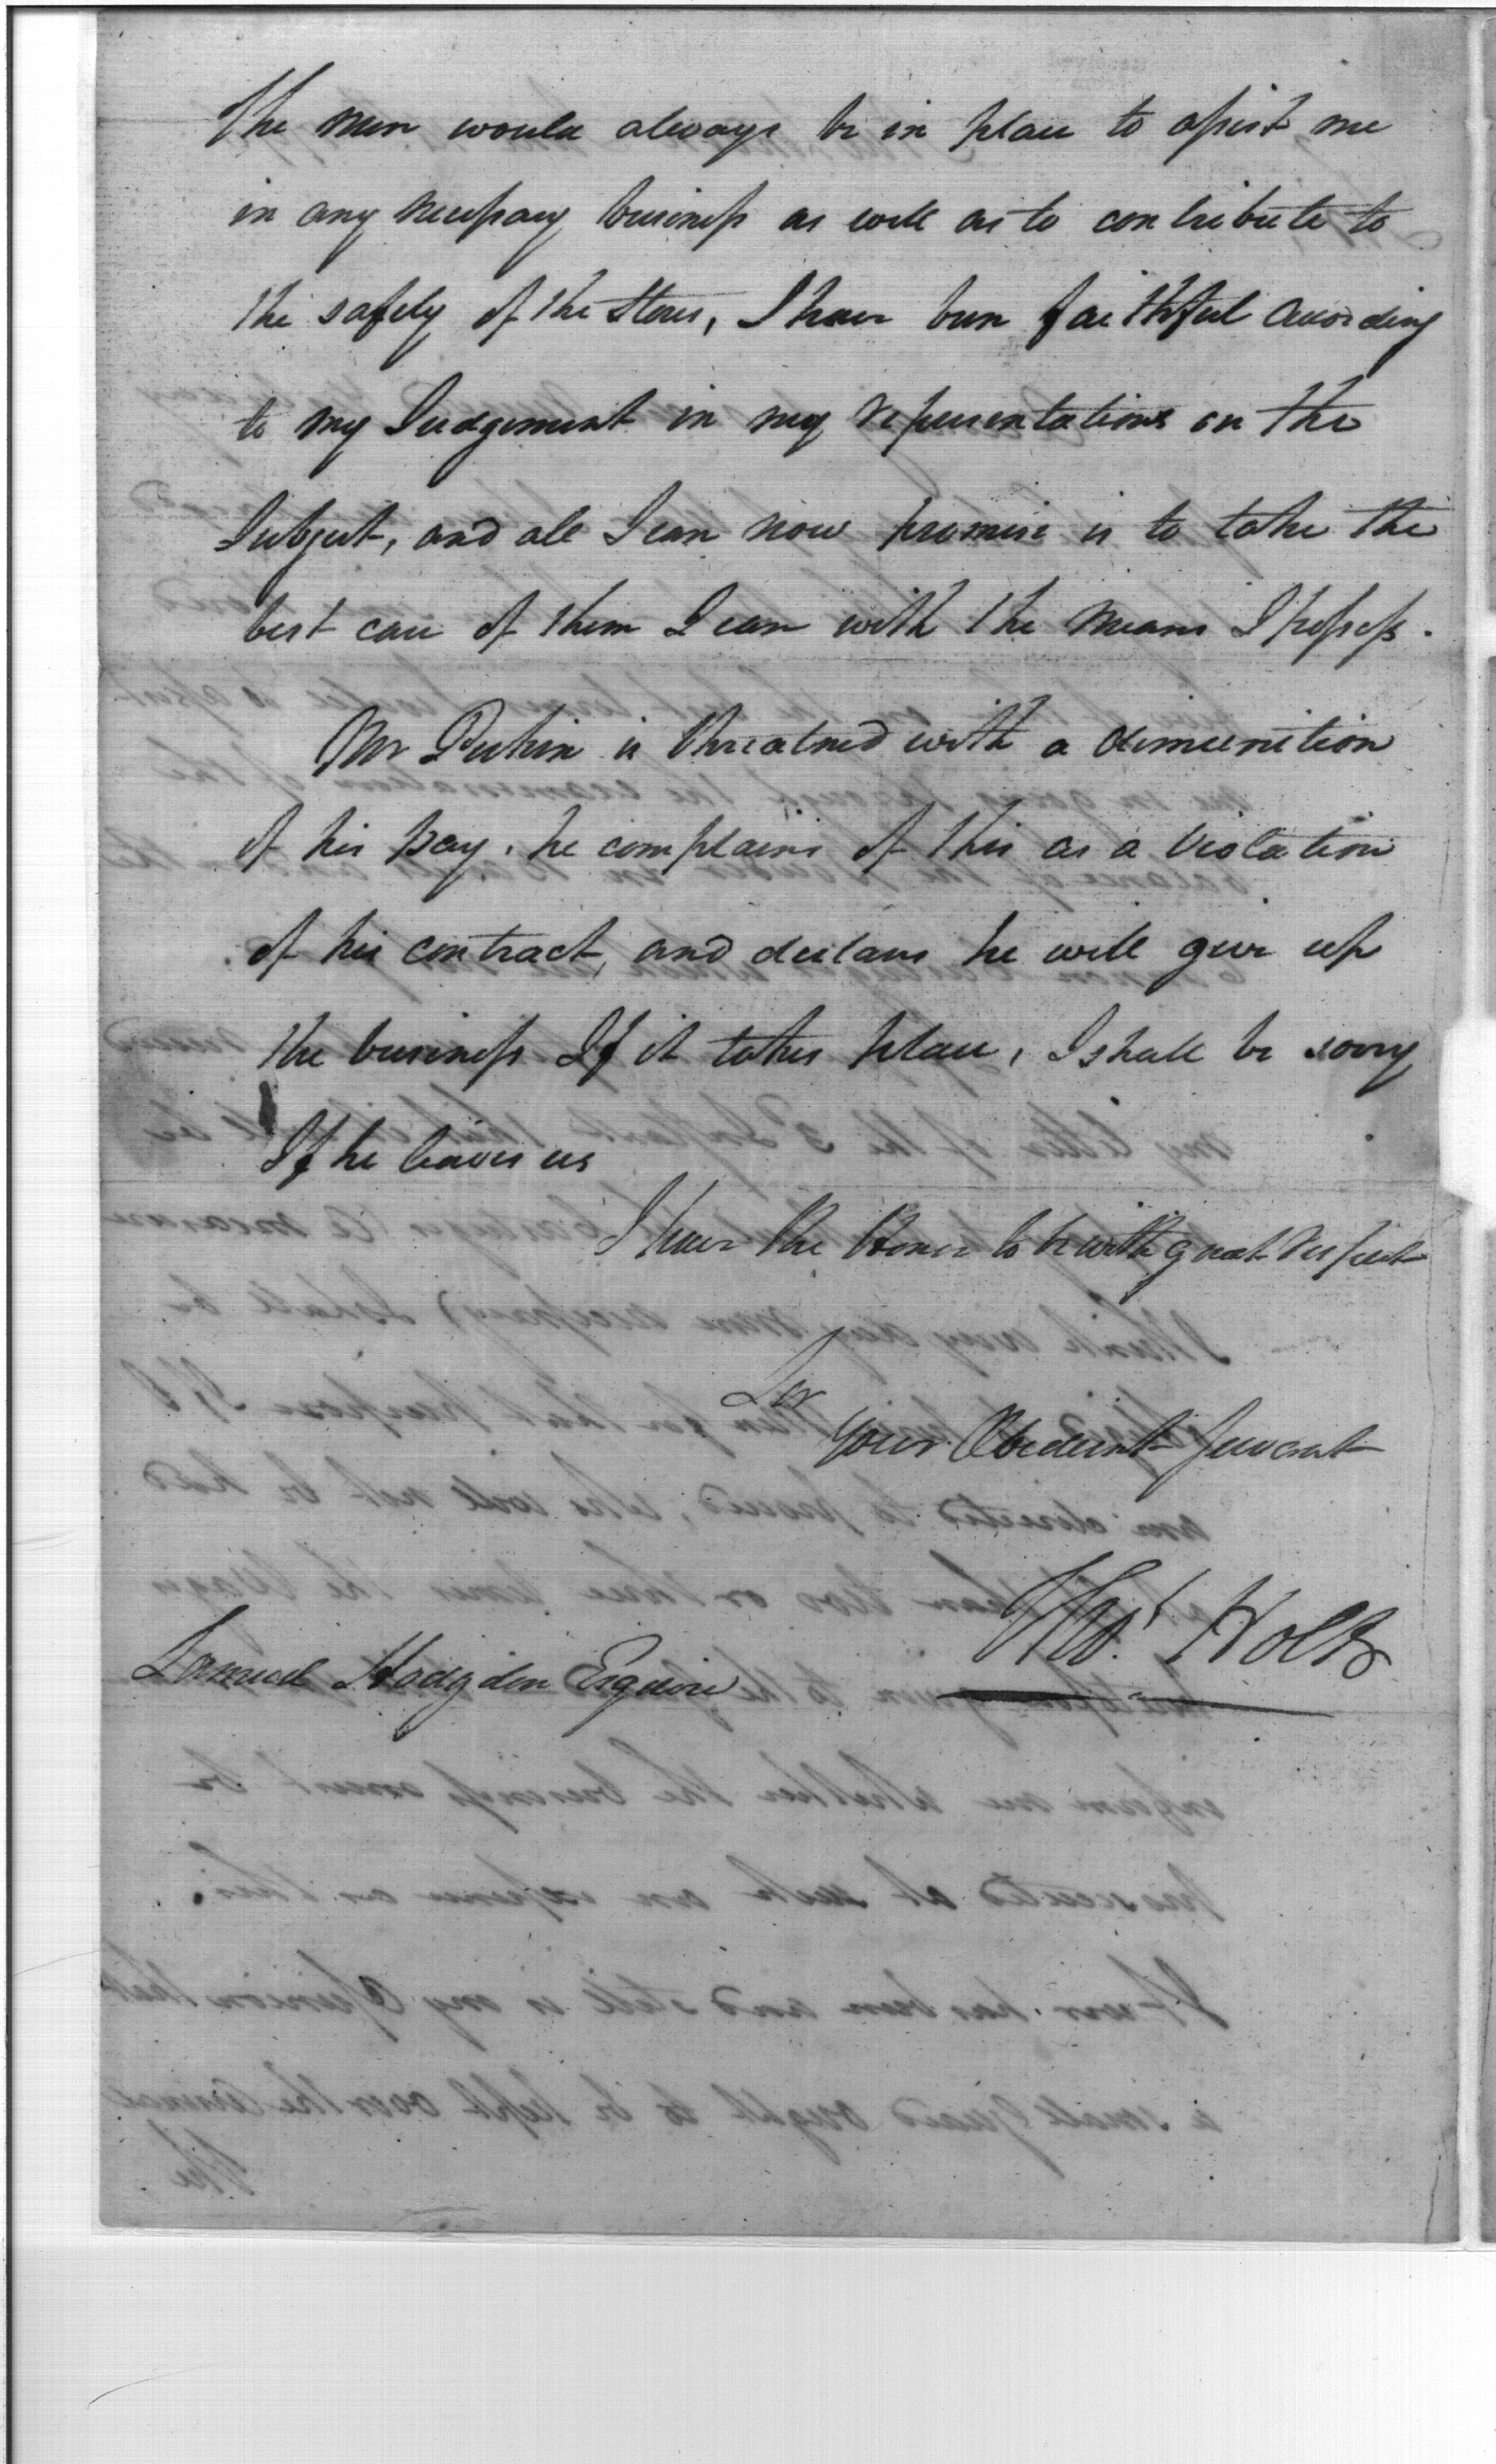 The men would always be in place to assist me
in any necessary business as well as to contribute to
the safety of the Stores, I have been faithful according
to my Judgement in my representations on the
Subject, and all I can now promise is to take the
best care of them I can with the means I possess.
Mr is threatned with a dimunition
of his pay. he complains of this as a violation
of his contract, and declares he will give up
the business If it takes place, I shall be sorry
If he leaves us
I have the Honor to be with great respect
Sir
Your Obedient Servant
Thos. Holt
Samuel Hodgdon Esquire